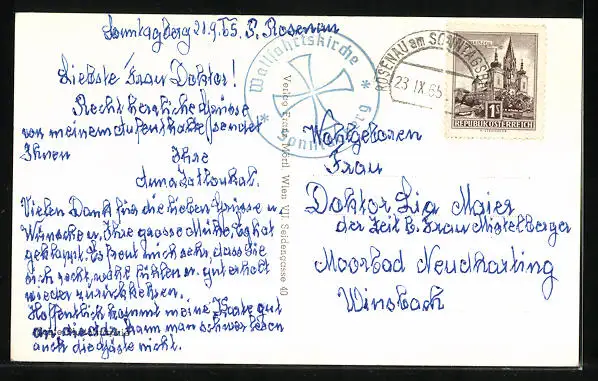 Sonntagberg 21.9.65. P. Rosenau
Liebste Frau Doktor!
Recht herzliche Grüsse
von meinem Aufenthalte sendet
Ihnen
Ihre
Anna
Vielen Dank für die lieben Grüsse u.
Wünsche u. Ihre grosse Mühe. Es hat
geklappt. Es freut mich sehr, dass Sie
sich recht, recht fühlen u. gut erholt
wieder zurückkehren.
Hoffentlich kommt meine Karte gut
an, die kann man schwer lesen
auch die Gäste nicht.
Wallfahrtskirche
* Sonntagberg *
Wien VII Seidengasse 40
ROSENAU am SONNTAGBERG
23.IX.65
1 S
REPUBLIK ÖSTERREICH
Wohlgeboren
Frau
Doktor Lia Maier
der Zeit b. Frau Mistelberger
Moorbad Neudharting
Wimsbach